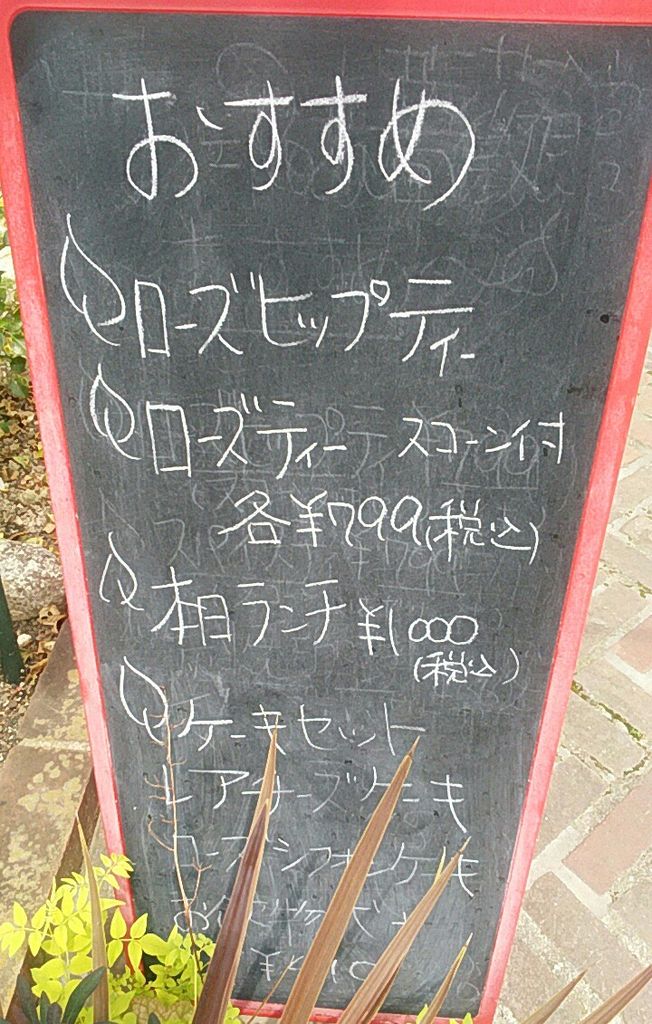 おすすめ
ローズヒップティー
ローズティー スコーン付
各¥799(税込)
本日ランチ ¥1000
(税込)
ケーキセット
レアチーズケーキ
ローズシフォンケーキ